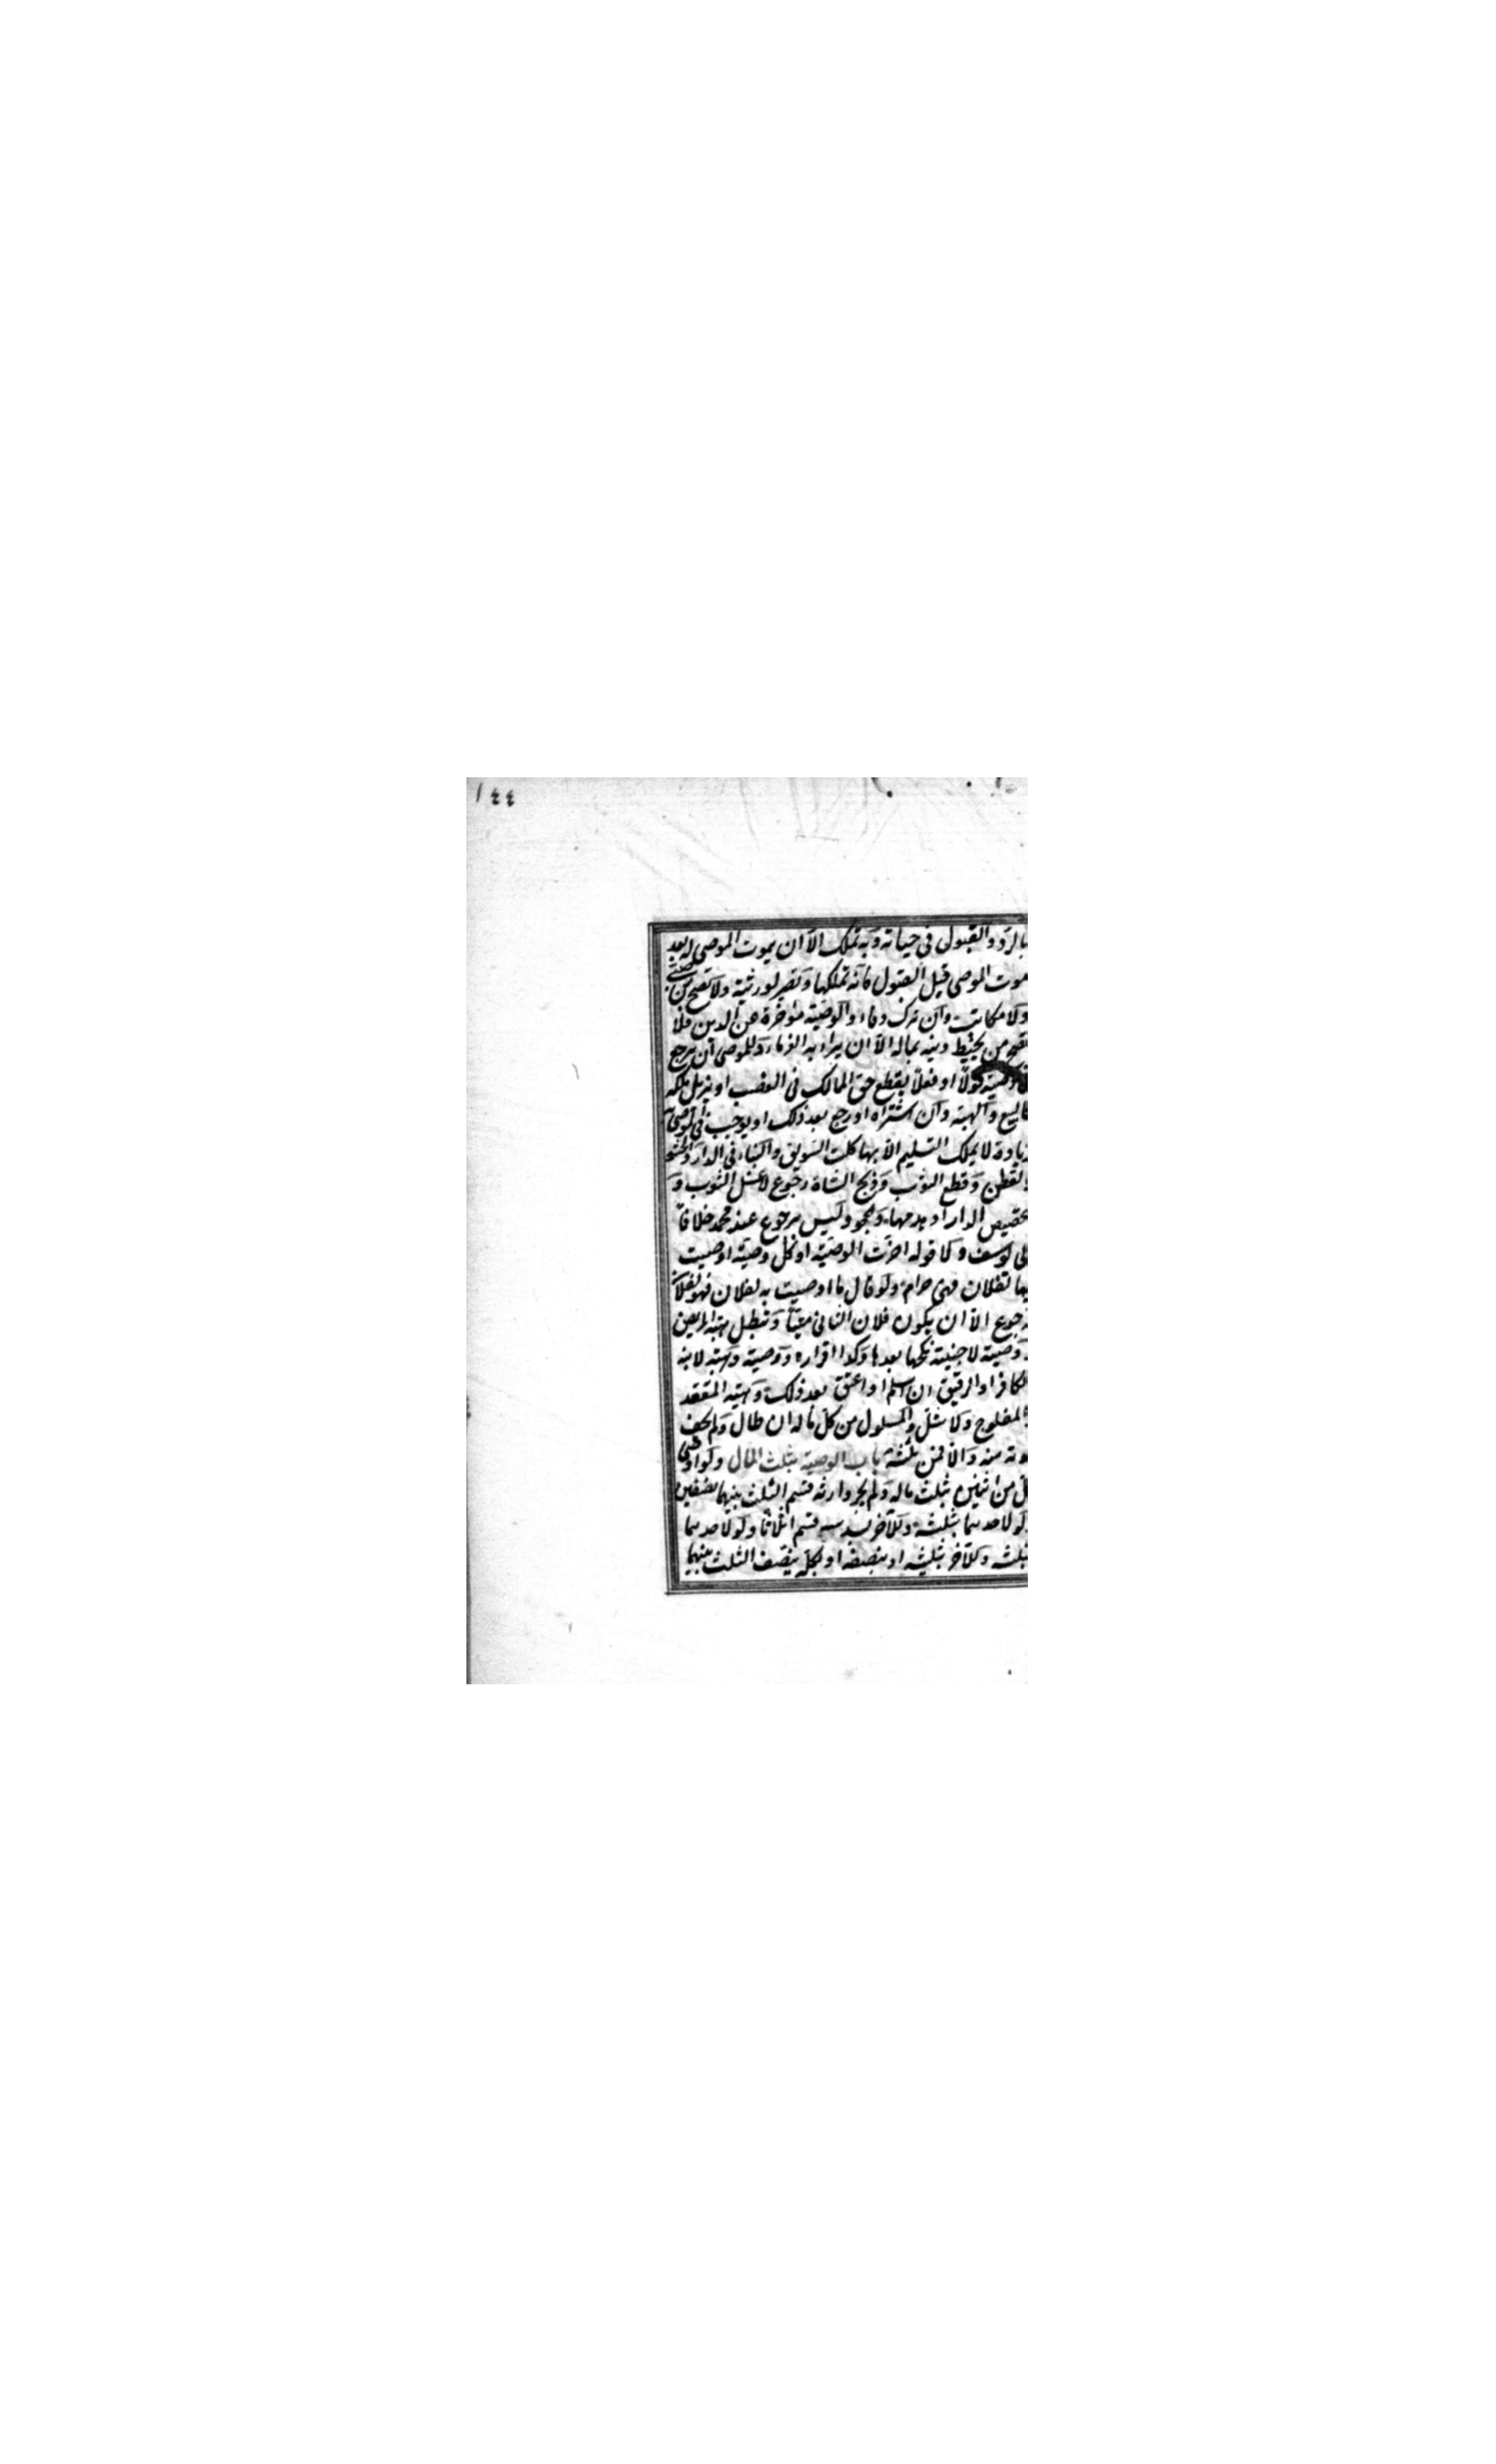 ١٤٤
بالرد والقبول فى حياته وبه تملك الا ان يموت الموصى له بعد
موت الموصى قبل القبول فانه تملكها وتصير لورثته ولا تصح من صبى
ولا مكاتب وان ترك وفاء والوصية مؤخرة عن الدين فلا
تصح من يحيط دينه بماله الا ان يبراء به الغرماء وللموصى ان يرجع
قولا او فعلا يقطع حق المالك فى الغصب او يزيل ملكه
كالبيع والهبة وان اشتراه او رجع بعد ذلك او يوجب فى الموصى به
زيادة لا يملك التسليم الا بها كلت السويق والبناء فى الدار والحشو
بالقطن وقطع الثوب وذبح الشاة رجوع لا غسل الثوب و
تجصيص الدار او هدمها والجحود ليس برجوع عند محمد خلافا
لابى يوسف ولا قوله اخرت الوصية او كل وصية اوصيت
بها لفلان فهى حرام ولو قال ما اوصيت به لفلان فهو لفلان
رجوع الا ان يكون فلان الثانى ميتا وتبطل هبة المريض
ووصيته لاجنبية نكحها بعدها وكذا اقراره ووصيته وهبته لابنه
الكافر او الرقيق ان اسلم او اعتق بعد ذلك وهبة المقعد
والمفلوج والاشل والمسلول من كل ماله ان طال ولم يخف
موته منه والا فمن ثلثه باب الوصية بثلث المال ولو اوصى
لكل من اثنين بثلث ماله ولم يجز وارثه قسم الثلث بينهما نصفين
ولو لاحدهما بثلثه وللآخر بسدسه قسم اثلاثا ولو لاحدهما
بثلثه وللآخر بثلثيه او بنصفه او بكله ينصف الثلث بينهما